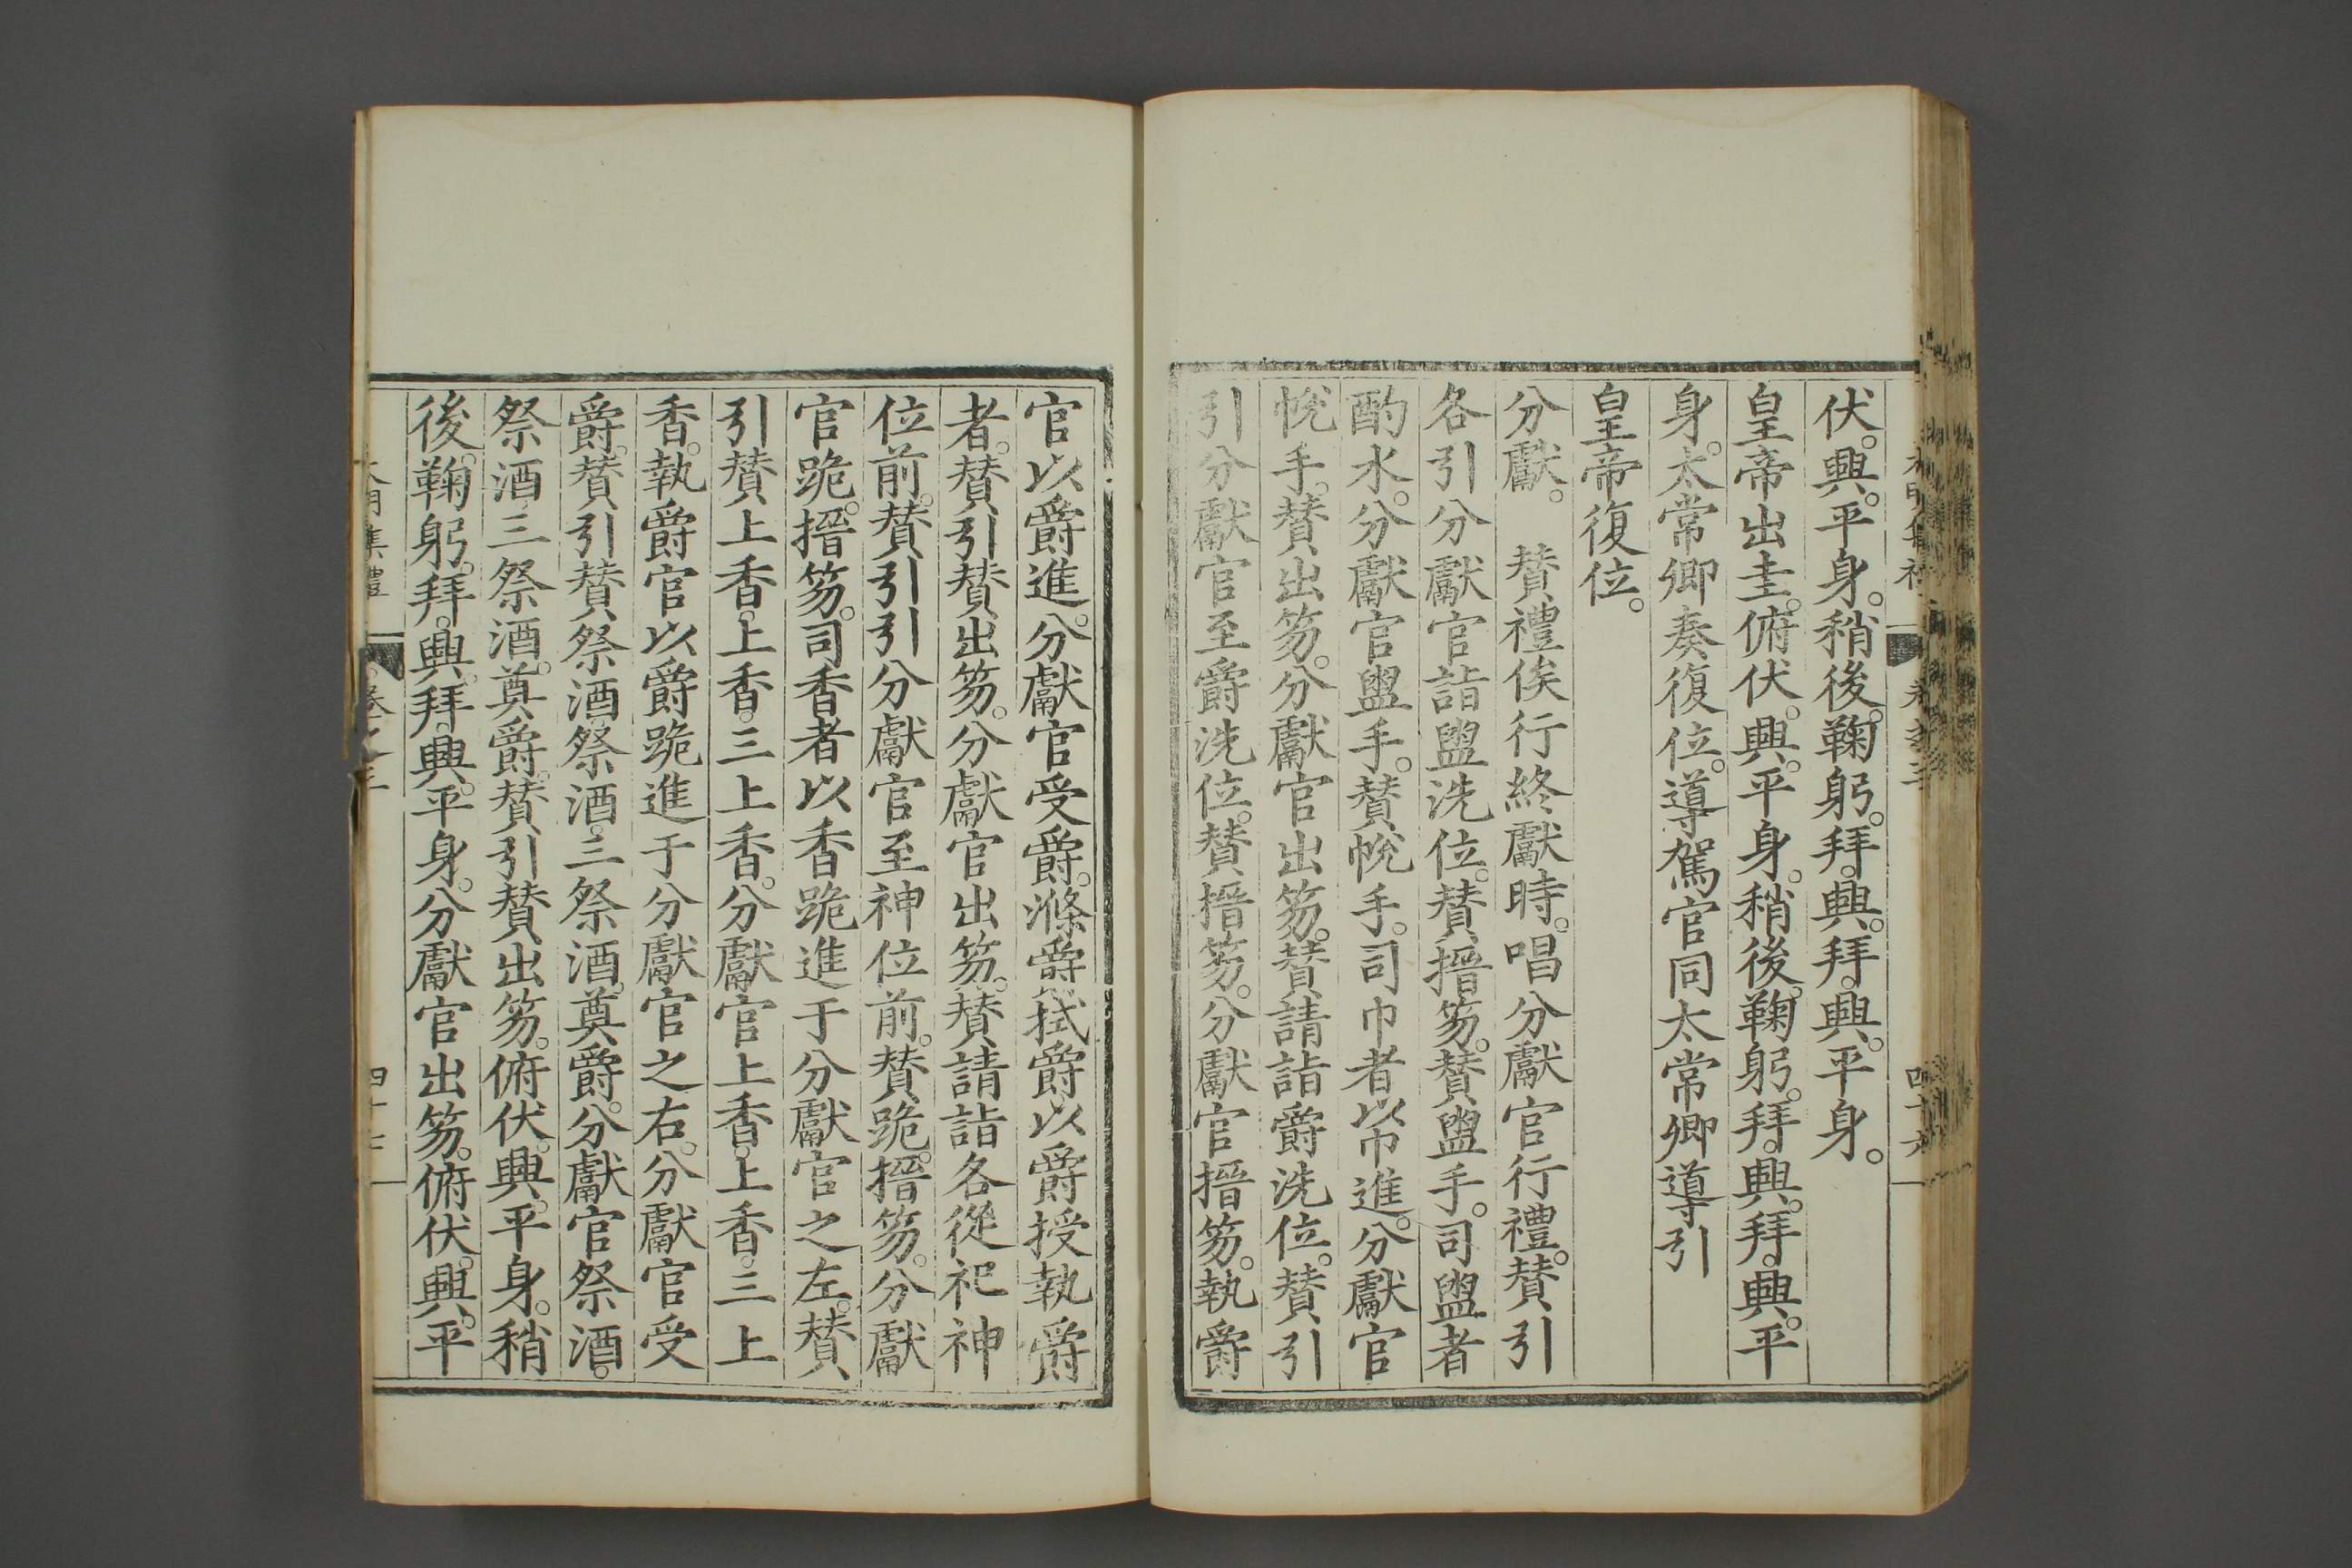 伏。興。平身。稍後。鞠躬。拜。興。拜。興。平身。
皇帝出圭。俯伏。興。平身。稍後。鞠躬。拜。興。拜。興。平
身。太常卿奏復位。導駕官同太常卿導引
皇帝復位。
分獻。　贊禮俟行終獻時。唱分獻官行禮。贊引
各引分獻官詣盥洗位。贊搢笏。贊盥手。司盥者
酌水。分獻官盥手。贊帨手。司巾者以巾進。分獻官
帨手。贊出笏。分獻官出笏。贊請詣爵洗位。贊引
引分獻官至爵洗位。贊搢笏。分獻官搢笏。執爵
官以爵進。分獻官受爵。滌爵拭爵以爵授執爵
者。贊引贊出笏。分獻官出笏。贊請詣各從祀神
位前。贊引引分獻官至神位前。贊跪。搢笏。分獻
官跪。搢笏。司香者以香跪進于分獻官之左。贊
引贊上香。上香。三上香。分獻官上香。上香。三上
香。執爵官以爵跪進于分獻官之右。分獻官受
爵。贊引贊祭酒祭酒。三祭酒。奠爵。分獻官祭酒。
祭酒三祭酒。奠爵。贊引贊出笏。俯伏。興。平身。稍
後。鞠躬。拜。興。拜。興。平身。分獻官出笏。俯伏。興。平
大明集禮
卷之三